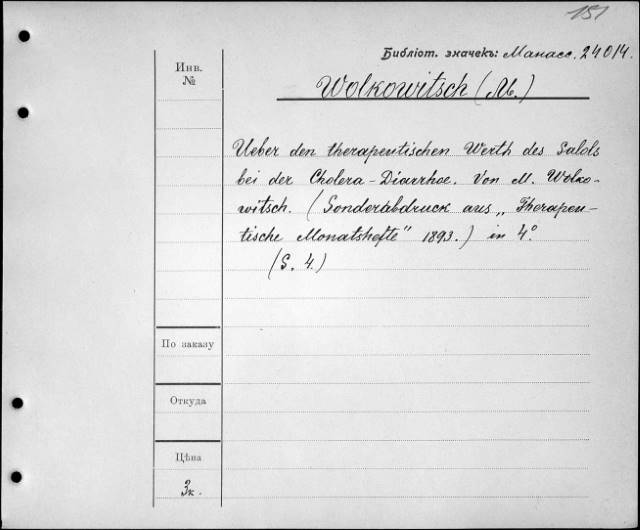 151
Библіот. значекъ: Манасс. 24014.
Инв.
№
Wolkowitsch (M.)
Ueber den therapeutischen Werth des Salols
bei der Cholera-Diarrhoe. Von M. Wolko-
witsch. (Sonderabdruck aus „Therapeu-
tische Monatshefte" 1893.) in 4°.
(S. 4.)
По заказу
Откуда
Цѣна
3к.